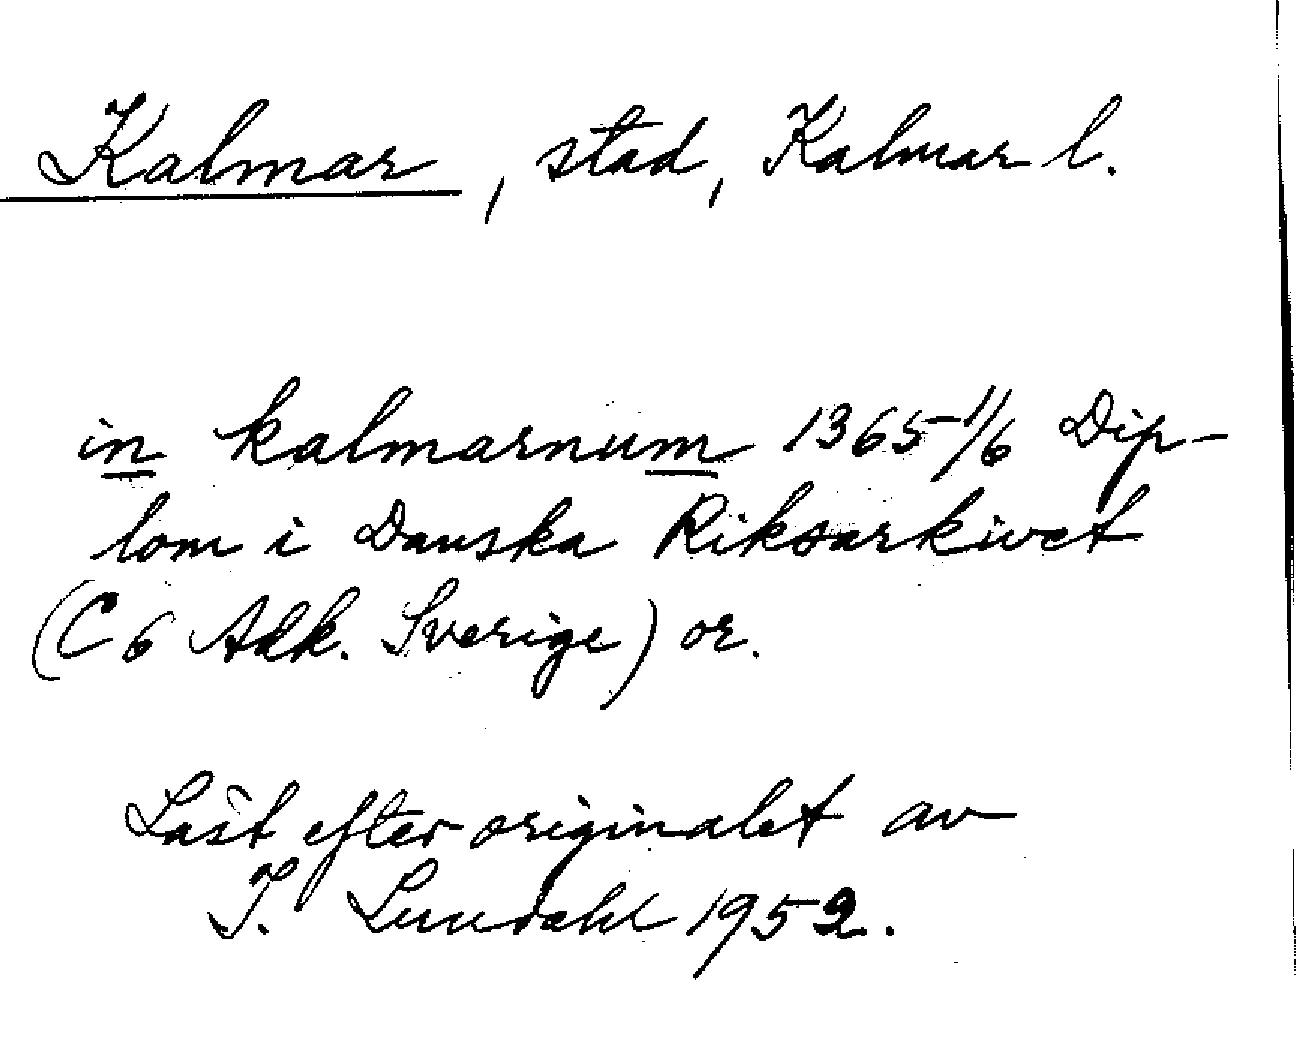 Kalmar, stad, Kalmar l.
in kalmarnum 1365 1/6 Dip-
lom i Danska Riksarkivet
(C 6 Adk. Sverige) or.
Läst efter originalet av
I. Lundahl 1952.